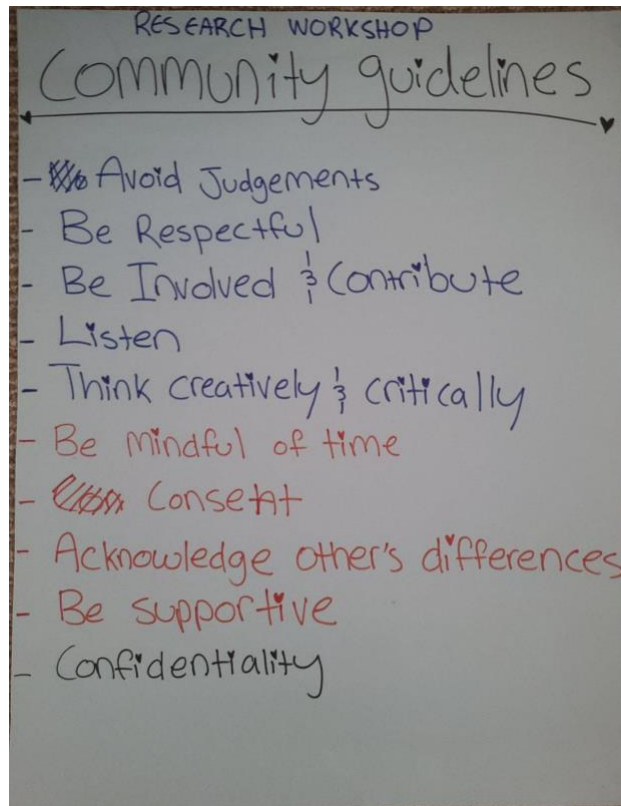 RESEARCH WORKSHOP
Community guidelines
- Avoid Judgements
- Be Respectful
- Be Involved & Contribute
- Listen
- Think creatively & critically
- Be mindful of time
- Consent
- Acknowledge other's differences
- Be supportive
- Confidentiality